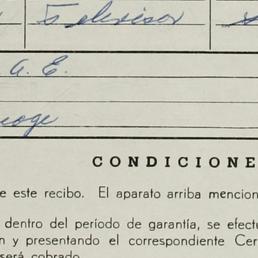 Televisor
A. E.
CONDICIONE
e este recibo. El aparato arriba mencion
dentro del período de garantía, se efectu
n y presentando el correspondiente Cer
será cobrado